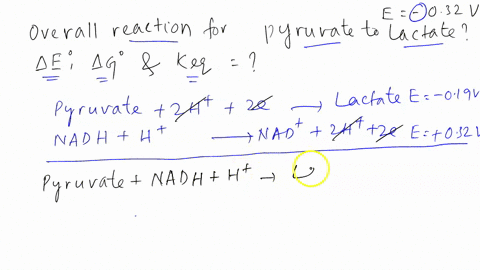 E = -0.32 V
Overall reaction for pyruvate to Lactate?
ΔE°, ΔG° & Keq = ?
Pyruvate + 2H⁺ + 2e → Lactate E=-0.19V
NADH + H⁺ → NAD⁺ + 2H⁺ + 2e E=+0.32V
Pyruvate + NADH + H⁺ → L